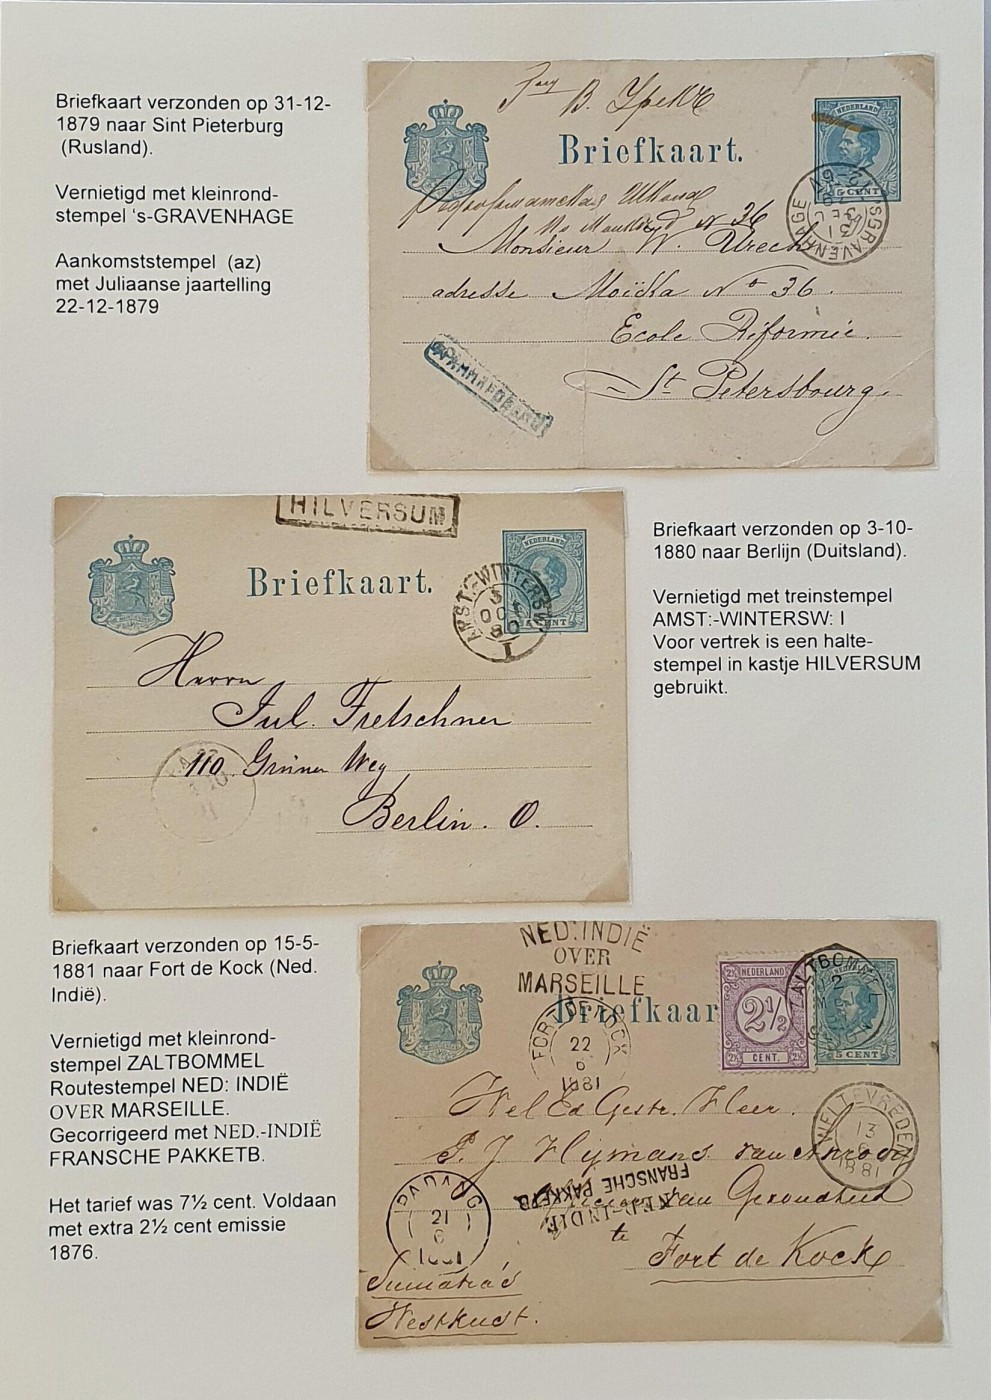 Briefkaart verzonden op 31-12-
1879 naar Sint Pieterburg
(Rusland).
Vernietigd met kleinrond-
stempel ‘s-GRAVENHAGE
Aankomststempel (az)
met Juliaanse jaartelling
22-12-1879
B. Ypeke
Briefkaart.
NEDERLAND
5 CENT
'SGRAVENHAGE
No 36
Monsieur W. Urech
adresse Moïka No 36.
Ecole Réformée.
St Petersbourg.
HILVERSUM
Briefkaart.
NEDERLAND
5 CENT
AMST:-WINTERSW:
3
OCT
80
I
Herrn
Jul. Fretschner
110 Grüner Weg
Berlin. O.
Briefkaart verzonden op 3-10-
1880 naar Berlijn (Duitsland).
Vernietigd met treinstempel
AMST:-WINTERSW: I
Voor vertrek is een halte-
stempel in kastje HILVERSUM
gebruikt.
Briefkaart verzonden op 15-5-
1881 naar Fort de Kock (Ned.
Indië).
Vernietigd met kleinrond-
stempel ZALTBOMMEL
Routestempel NED: INDIË
OVER MARSEILLE.
Gecorrigeerd met NED.-INDIË
FRANSCHE PAKKETB.
Het tarief was 7½ cent. Voldaan
met extra 2½ cent emissie
1876.
NED: INDIË
OVER
MARSEILLE
Briefkaart
NEDERLAND
2½
CENT.
ZALTBOMMEL
5 CENT
FORT DE KOCK
22
6
1881
WelEdGestr. Heer.
P. J. Hijmans van Anrooij
WELTEVREDEN
13
6
1881
NED.-INDIË
FRANSCHE PAKKETB.
van Gezondheid
te
Fort de Kock
PADANG
21
6
1881
Sumatra's
Westkust.